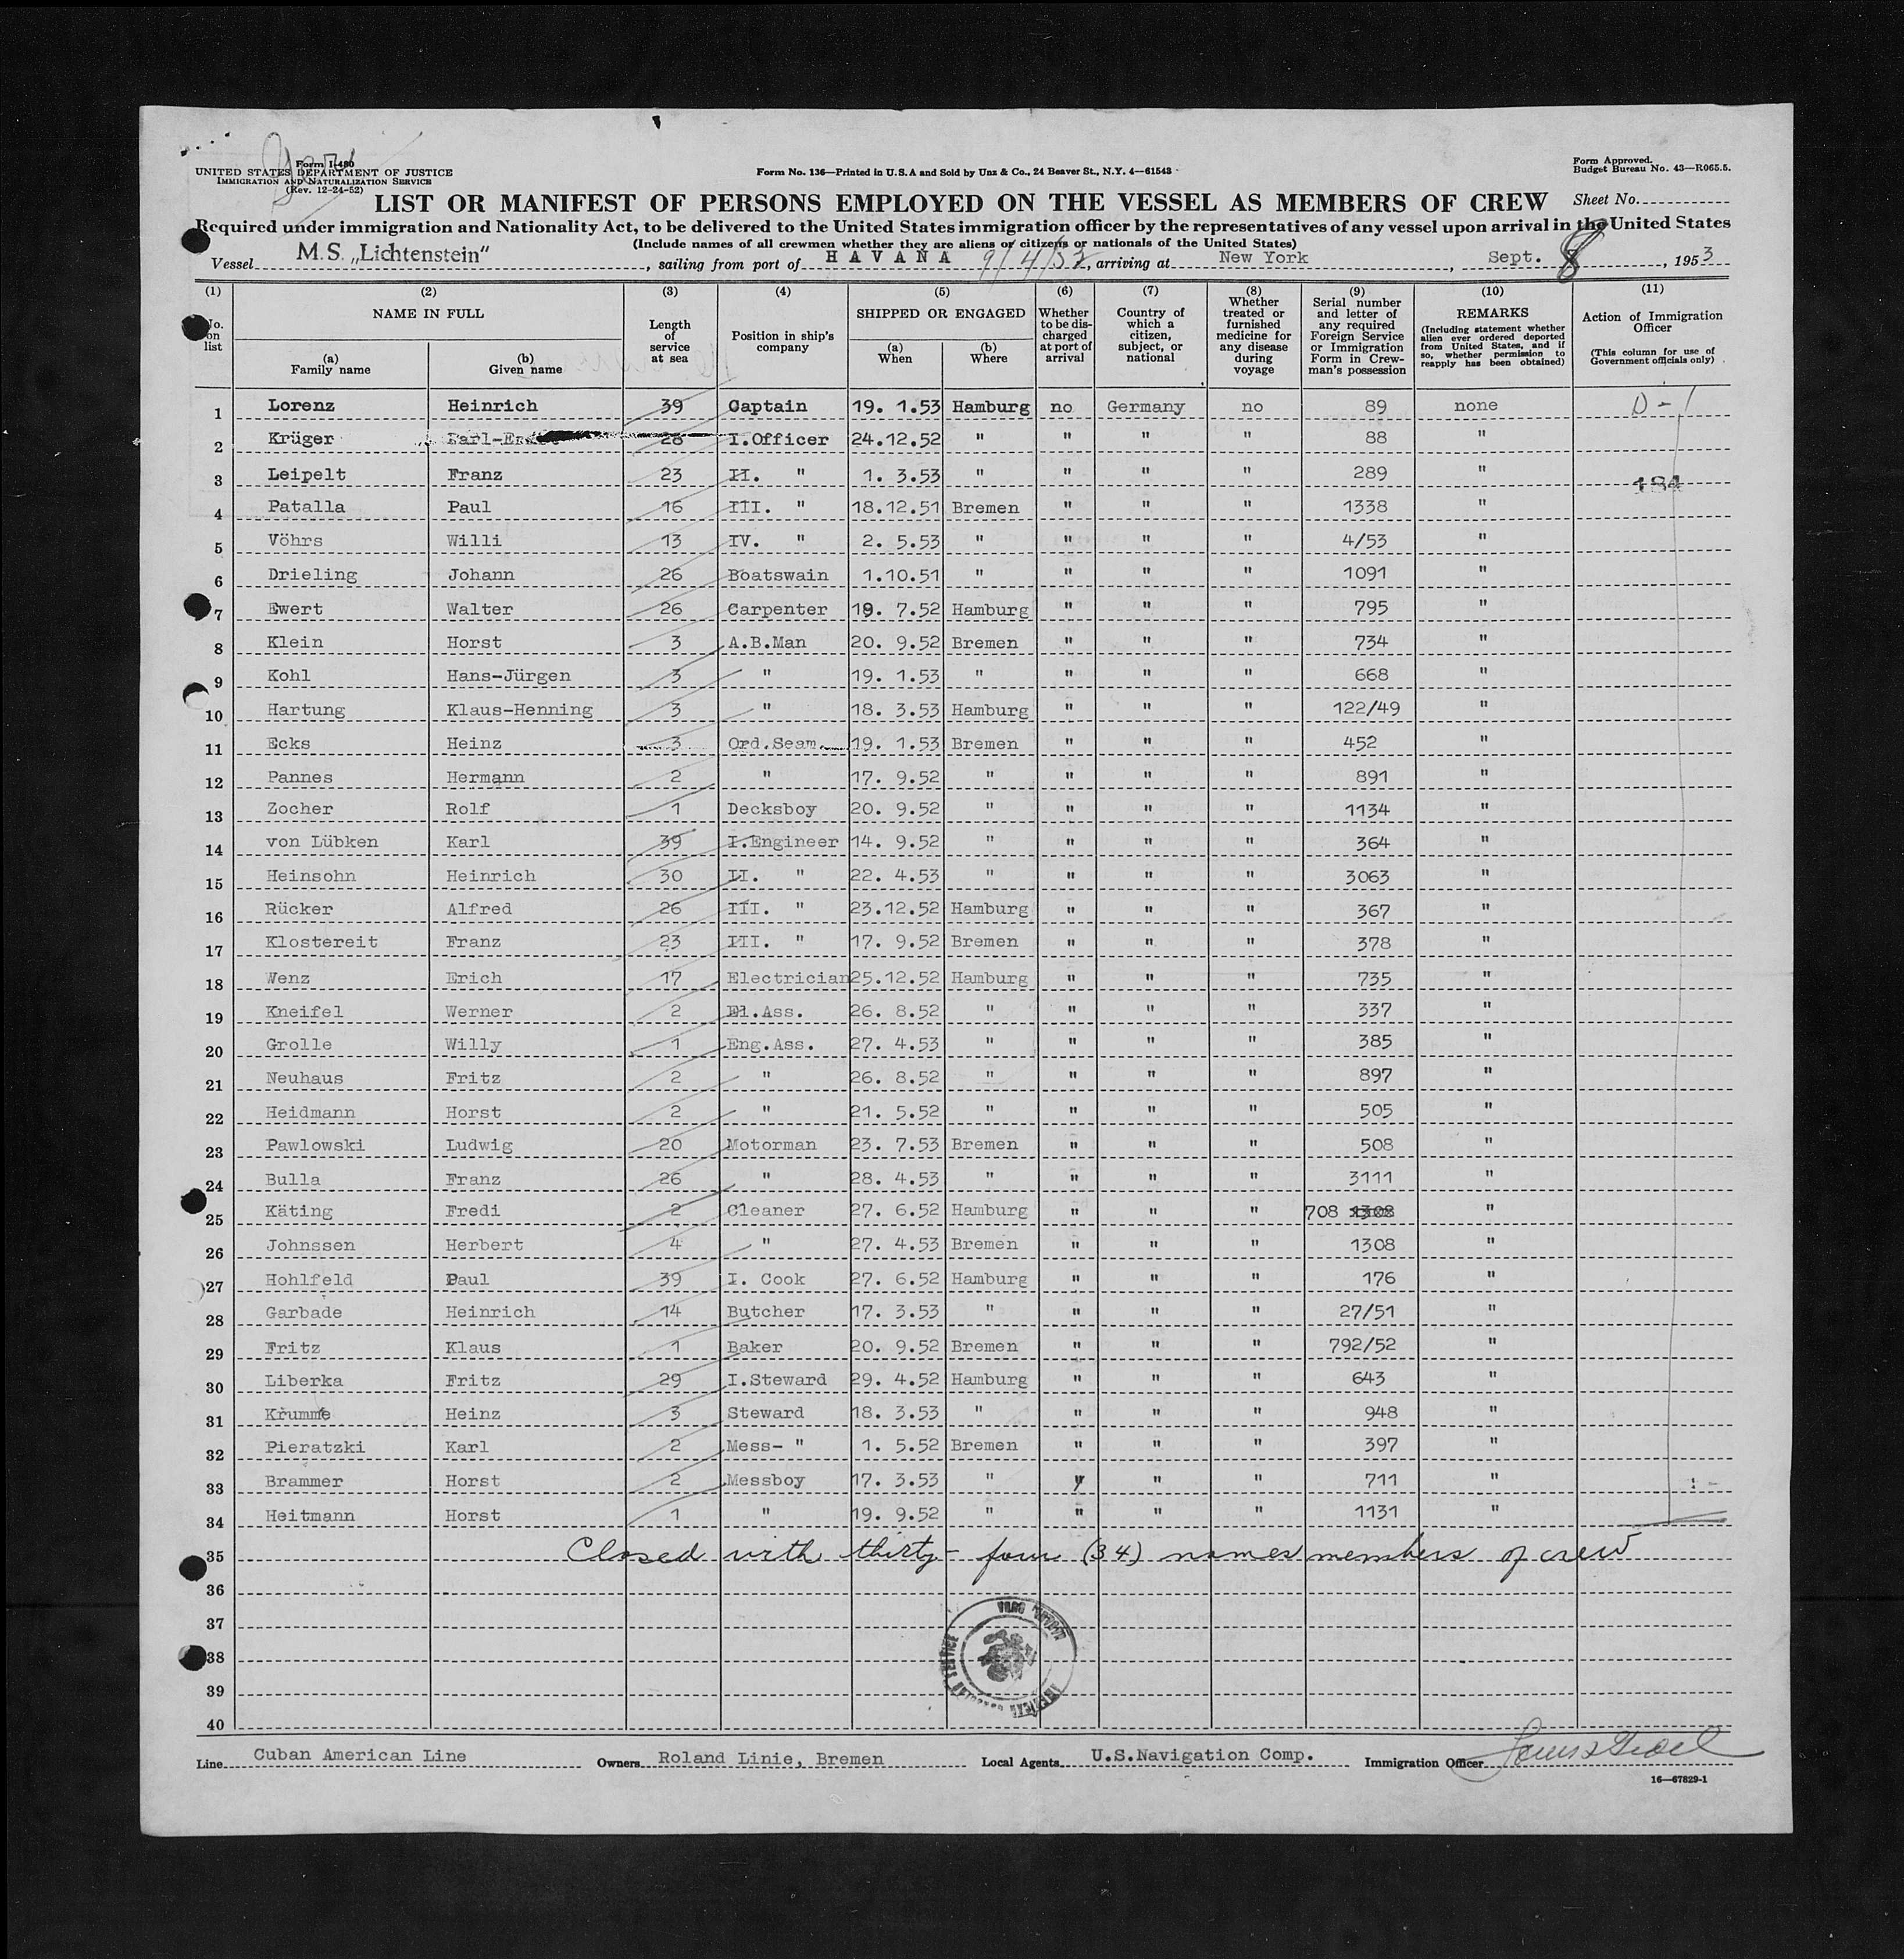 Form I-480
UNITED STATES DEPARTMENT OF JUSTICE
IMMIGRATION AND NATURALIZATION SERVICE
(Rev. 12-24-52)
Form No. 136—Printed in U.S.A and Sold by Unz & Co., 24 Beaver St., N.Y. 4—61543
Form Approved.
Budget Bureau No. 43—R065.5.
LIST OR MANIFEST OF PERSONS EMPLOYED ON THE VESSEL AS MEMBERS OF CREW
Sheet No.
Required under immigration and Nationality Act, to be delivered to the United States immigration officer by the representatives of any vessel upon arrival in the United States
(Include names of all crewmen whether they are aliens or citizens or nationals of the United States)
Vessel M.S. „Lichtenstein“, sailing from port of HAVANA 9/4/53, arriving at New York, Sept. 8, 1953
(1) (2) (3) (4) (5) (6) (7) (8) (9) (10) (11)
No. on list
NAME IN FULL
(a) Family name
(b) Given name
Length of service at sea
Position in ship's company
SHIPPED OR ENGAGED
(a) When
(b) Where
Whether to be discharged at port of arrival
Country of which a citizen, subject, or national
Whether treated or furnished medicine for any disease during voyage
Serial number and letter of any required Foreign Service or Immigration Form in Crewman's possession
REMARKS
(Including statement whether alien ever ordered deported from United States, and if so, whether permission to reapply has been obtained)
Action of Immigration Officer
(This column for use of Government officials only)
1 Lorenz Heinrich 39 Captain 19. 1.53 Hamburg no Germany no 89 none D-1
2 Krüger 28 I.Officer 24.12.52 " " " " 88 "
3 Leipelt Franz 23 II. " 1. 3.53 " " " " 289 " 184
4 Patalla Paul 16 III. " 18.12.51 Bremen " " " 1338 "
5 Vöhrs Willi 13 IV. " 2. 5.53 " " " " 4/53 "
6 Drieling Johann 26 Boatswain 1.10.51 " " " " 1091 "
7 Ewert Walter 26 Carpenter 19. 7.52 Hamburg " " " 795 "
8 Klein Horst 3 A.B.Man 20. 9.52 Bremen " " " 734 "
9 Kohl Hans-Jürgen 3 " 19. 1.53 " " " " 668 "
10 Hartung Klaus-Henning 3 " 18. 3.53 Hamburg " " " 122/49 "
11 Ecks Heinz 3 Ord.Seam. 19. 1.53 Bremen " " " 452 "
12 Pannes Hermann 2 " 17. 9.52 " " " " 891 "
13 Zocher Rolf 1 Decksboy 20. 9.52 " " " " 1134 "
14 von Lübken Karl 39 I.Engineer 14. 9.52 " " " " 364 "
15 Heinsohn Heinrich 30 II. " 22. 4.53 " " " " 3063 "
16 Rücker Alfred 26 III. " 23.12.52 Hamburg " " " 367 "
17 Klostereit Franz 23 III. " 17. 9.52 Bremen " " " 378 "
18 Wenz Erich 17 Electrician 25.12.52 Hamburg " " " 735 "
19 Kneifel Werner 2 El.Ass. 26. 8.52 " " " " 337 "
20 Grolle Willy 1 Eng.Ass. 27. 4.53 " " " " 385 "
21 Neuhaus Fritz 2 " 26. 8.52 " " " " 897 "
22 Heidmann Horst 2 " 21. 5.52 " " " " 505 "
23 Pawlowski Ludwig 20 Motorman 23. 7.53 Bremen " " " 508 "
24 Bulla Franz 26 " 28. 4.53 " " " " 3111 "
25 Käting Fredi 2 Cleaner 27. 6.52 Hamburg " " " 708 1308 "
26 Johnssen Herbert 4 " 27. 4.53 Bremen " " " 1308 "
27 Hohlfeld Paul 39 I. Cook 27. 6.52 Hamburg " " " 176 "
28 Garbade Heinrich 14 Butcher 17. 3.53 " " " " 27/51 "
29 Fritz Klaus 1 Baker 20. 9.52 Bremen " " " 792/52 "
30 Liberka Fritz 29 I.Steward 29. 4.52 Hamburg " " " 643 "
31 Krumme Heinz 3 Steward 18. 3.53 " " " " 948 "
32 Pieratzki Karl 2 Mess- " 1. 5.52 Bremen " " " 397 "
33 Brammer Horst 2 Messboy 17. 3.53 " " " " 711 "
34 Heitmann Horst 1 " 19. 9.52 " " " " 1131 "
35 Closed with thirty-four (34) names members of crew
36
37
38
39
40
Line Cuban American Line Owners Roland Linie, Bremen Local Agents U.S.Navigation Comp. Immigration Officer
16—67829-1